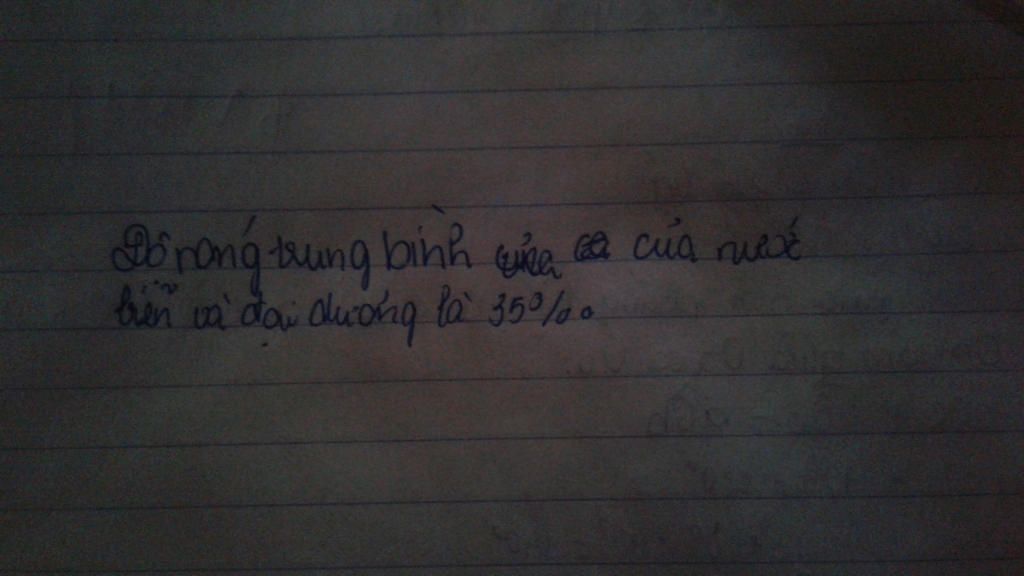 Độ rộng trung bình của của nước
biển và đại dương là 35%о